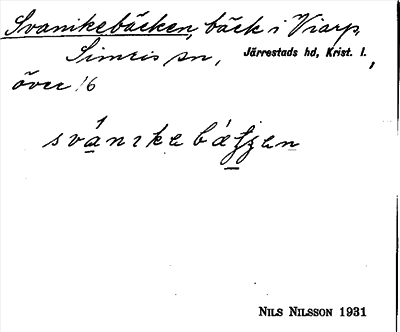 Svanikebäcken, bäck i Viarp,
Simris sn, Järrestads hd, Krist. l.,
över 16
NILS NILSSON 1931